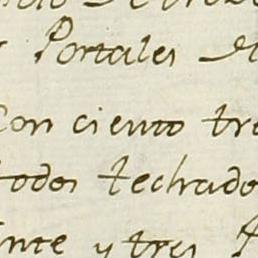 Portales
Con ciento tre
todos techado
inte y tres